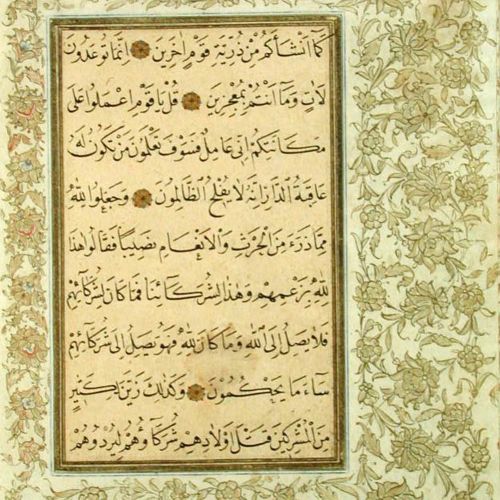 كَمَا اَنْشَاَكُمْ مِنْ ذُرِّيَّةِ قَوْمٍ اٰخَرِينَ اِنَّمَا تُوعَدُونَ
لَاٰتٍ وَمَٓا اَنْتُمْ بِمُعْجِزِينَ قُلْ يَا قَوْمِ اعْمَلُوا عَلٰى
مَكَانَتِكُمْ اِنّ۪ى عَامِلٌ فَسَوْفَ تَعْلَمُونَ مَنْ تَكُونُ لَهُ
عَاقِبَةُ الدَّارِ اِنَّهُ لَا يُفْلِحُ الظَّالِمُونَ وَجَعَلُوا لِلّٰهِ
مِمَّا ذَرَءَ مِنَ الْحَرْثِ وَالْاَنْعَامِ نَصِيبًا فَقَالُوا هٰذَا
لِلّٰهِ بِزَعْمِهِمْ وَهٰذَا لِشُرَكَٓائِنَا فَمَا كَانَ لِشُرَكَٓائِهِمْ
فَلَا يَصِلُ اِلَى اللّٰهِ وَمَا كَانَ لِلّٰهِ فَهُوَ يَصِلُ اِلٰى شُرَكَٓائِهِمْ
سَٓاءَ مَا يَحْكُمُونَ وَكَذٰلِكَ زَيَّنَ لِكَثِيرٍ
مِنَ الْمُشْرِكِينَ قَتْلَ اَوْلَادِهِمْ شُرَكَٓاؤُهُمْ لِيُرْدُوهُمْ